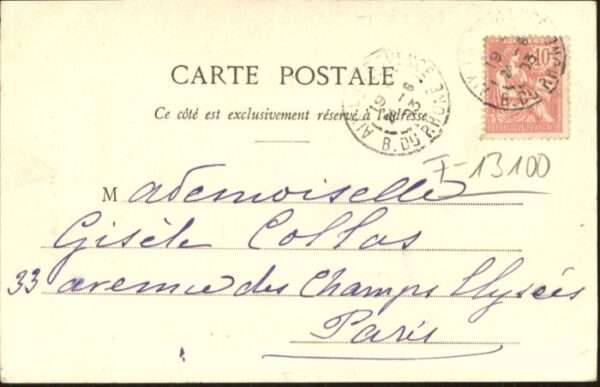 CARTE POSTALE
Ce côté est exclusivement réservé à l'adresse
10
B. DU RHONE
F-13100
Mademoiselle
Gisèle Collas
33 avenue des Champs Elysées
Paris